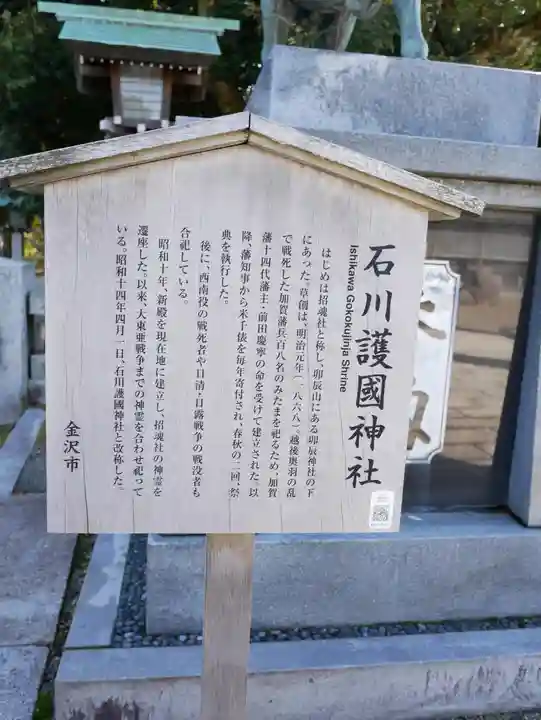 石川護國神社
Ishikawa Gokokujinja Shrine
はじめは招魂社と称し、卯辰山にある卯辰神社の下
にあった。草創は、明治元年(一八六八)。越後奥羽の乱
で戦死した加賀藩兵百八名のみたまを祀るため、加賀
藩十四代藩主・前田慶寧の命を受けて建立された。以
降、藩知事から米千俵を毎年寄付され、春秋の二回、祭
典を執行した。
後に、西南役の戦死者や日清・日露戦争の戦没者も
合祀している。
昭和十年、新殿を現在地に建立し、招魂社の神霊を
遷座した。以来、大東亜戦争までの神霊を合わせ祀って
いる。昭和十四年四月一日、石川護國神社と改称した。
金沢市